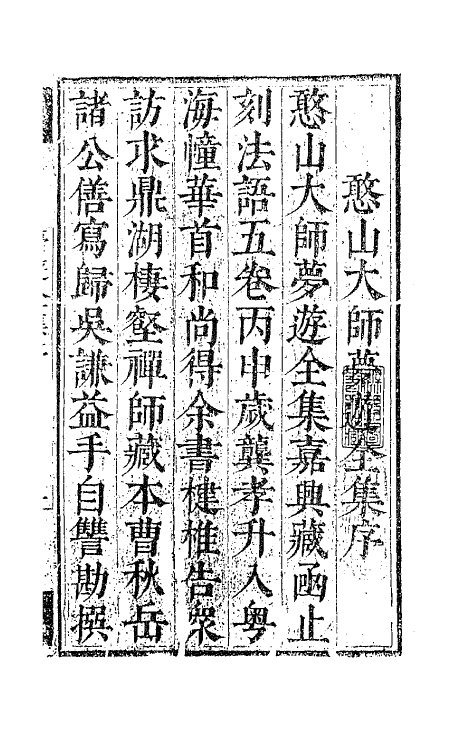 憨山大師夢遊全集序
憨山大師夢遊全集嘉興藏函止
刻法語五卷丙申歲龔孝升入粵
海幢華首和尚得余書楗椎告衆
訪求鼎湖棲壑禪師藏本曹秋岳
諸公僐寫歸吳謙益手自讐勘撰